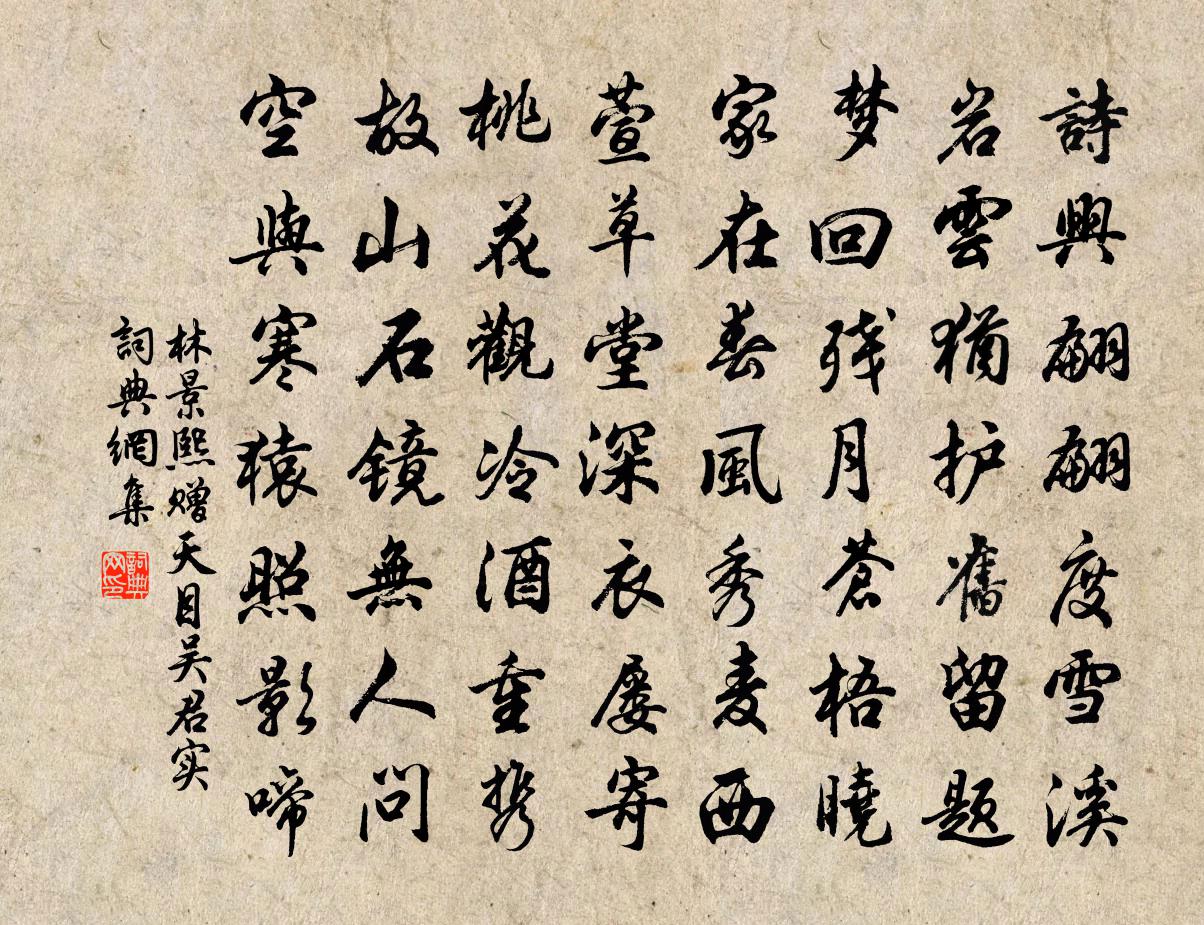 詩興翩翩度雪溪
岩雲猶护舊留題
梦回残月蒼梧曉
家在春風秀麦西
萱草堂深衣屡寄
桃花觀冷酒重携
故山石鏡無人問
空與寒猿照影啼
林景熙赠天目吴君实
詞典網集
詞典网印